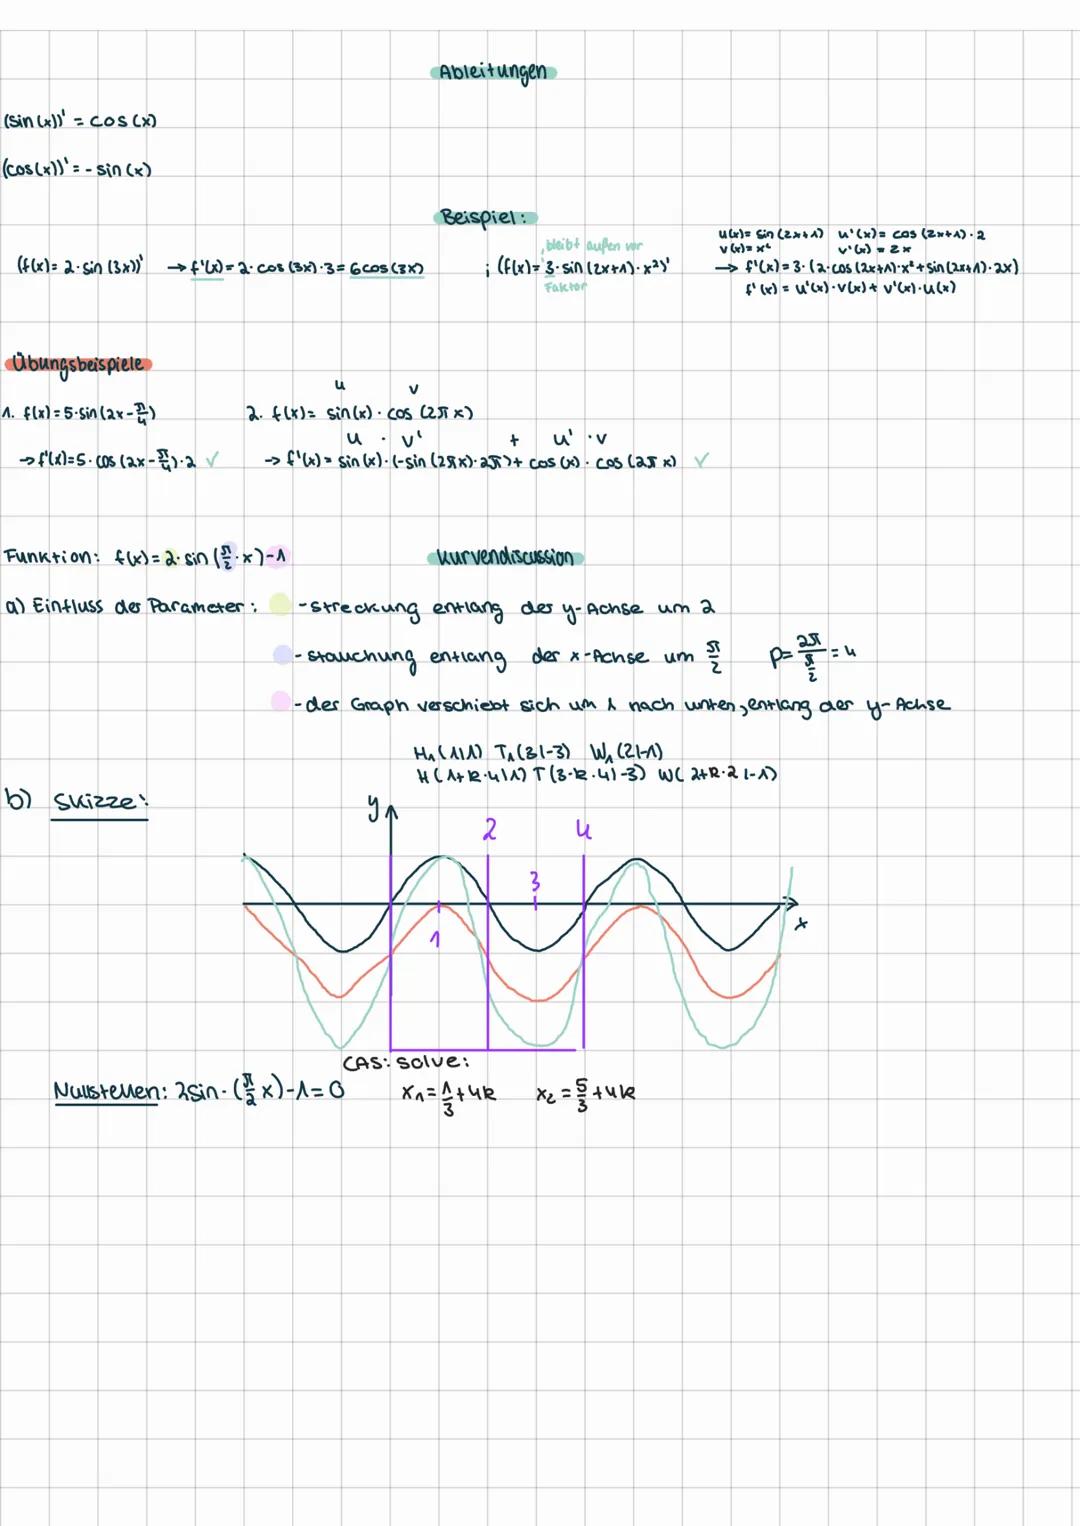 Ableitungen
(sin(x))' = cos(x)
(cos(x))' = - sin(x)
Beispiel:
u(x)= sin(2x+1) u'(x)= cos(2x+1)·2
bleibt außen vor v(x)= x² v'(x) = 2x
(f(x)= 2·sin(3x))' → f'(x)= 2·cos(3x)·3= 6cos(3x) ; (f(x)= 3·sin(2x+1)·x²)' → f'(x)= 3·(2·cos(2x+1)·x²+sin(2x+1)·2x)
Faktor f'(x) = u'(x)·v(x)+ v'(x)·u(x)
Übungsbeispiele
u v
1. f(x)=5·sin(2x-π/4) 2. f(x)= sin(x)·cos(2πx)
u · v' + u' · v
→f'(x)=5·cos(2x-π/4)·2 ✓ → f'(x)= sin(x)·(-sin(2πx)·2π)+ cos(x)·cos(2πx) ✓
Funktion: f(x)=2·sin(π/2·x)-1 Kurvendiscussion
a) Einfluss der Parameter: -streckung entlang der y-Achse um 2
- stauchung entlang der x-Achse um π/2 p= 2π/(π/2) = 4
- der Graph verschiebt sich um 1 nach unten, entlang der y-Achse
H₁(1|1) T₁(3|-3) W₁(2|-1)
H(1+k·4|1) T(3·k·4|-3) W(2+k·2|-1)
b) Skizze:
y
2 4
3
1
x
CAS: solve:
Nullstellen: 2sin·(π/2 x)-1=0 x₁= 1/3+4k x₂= 5/3+4k